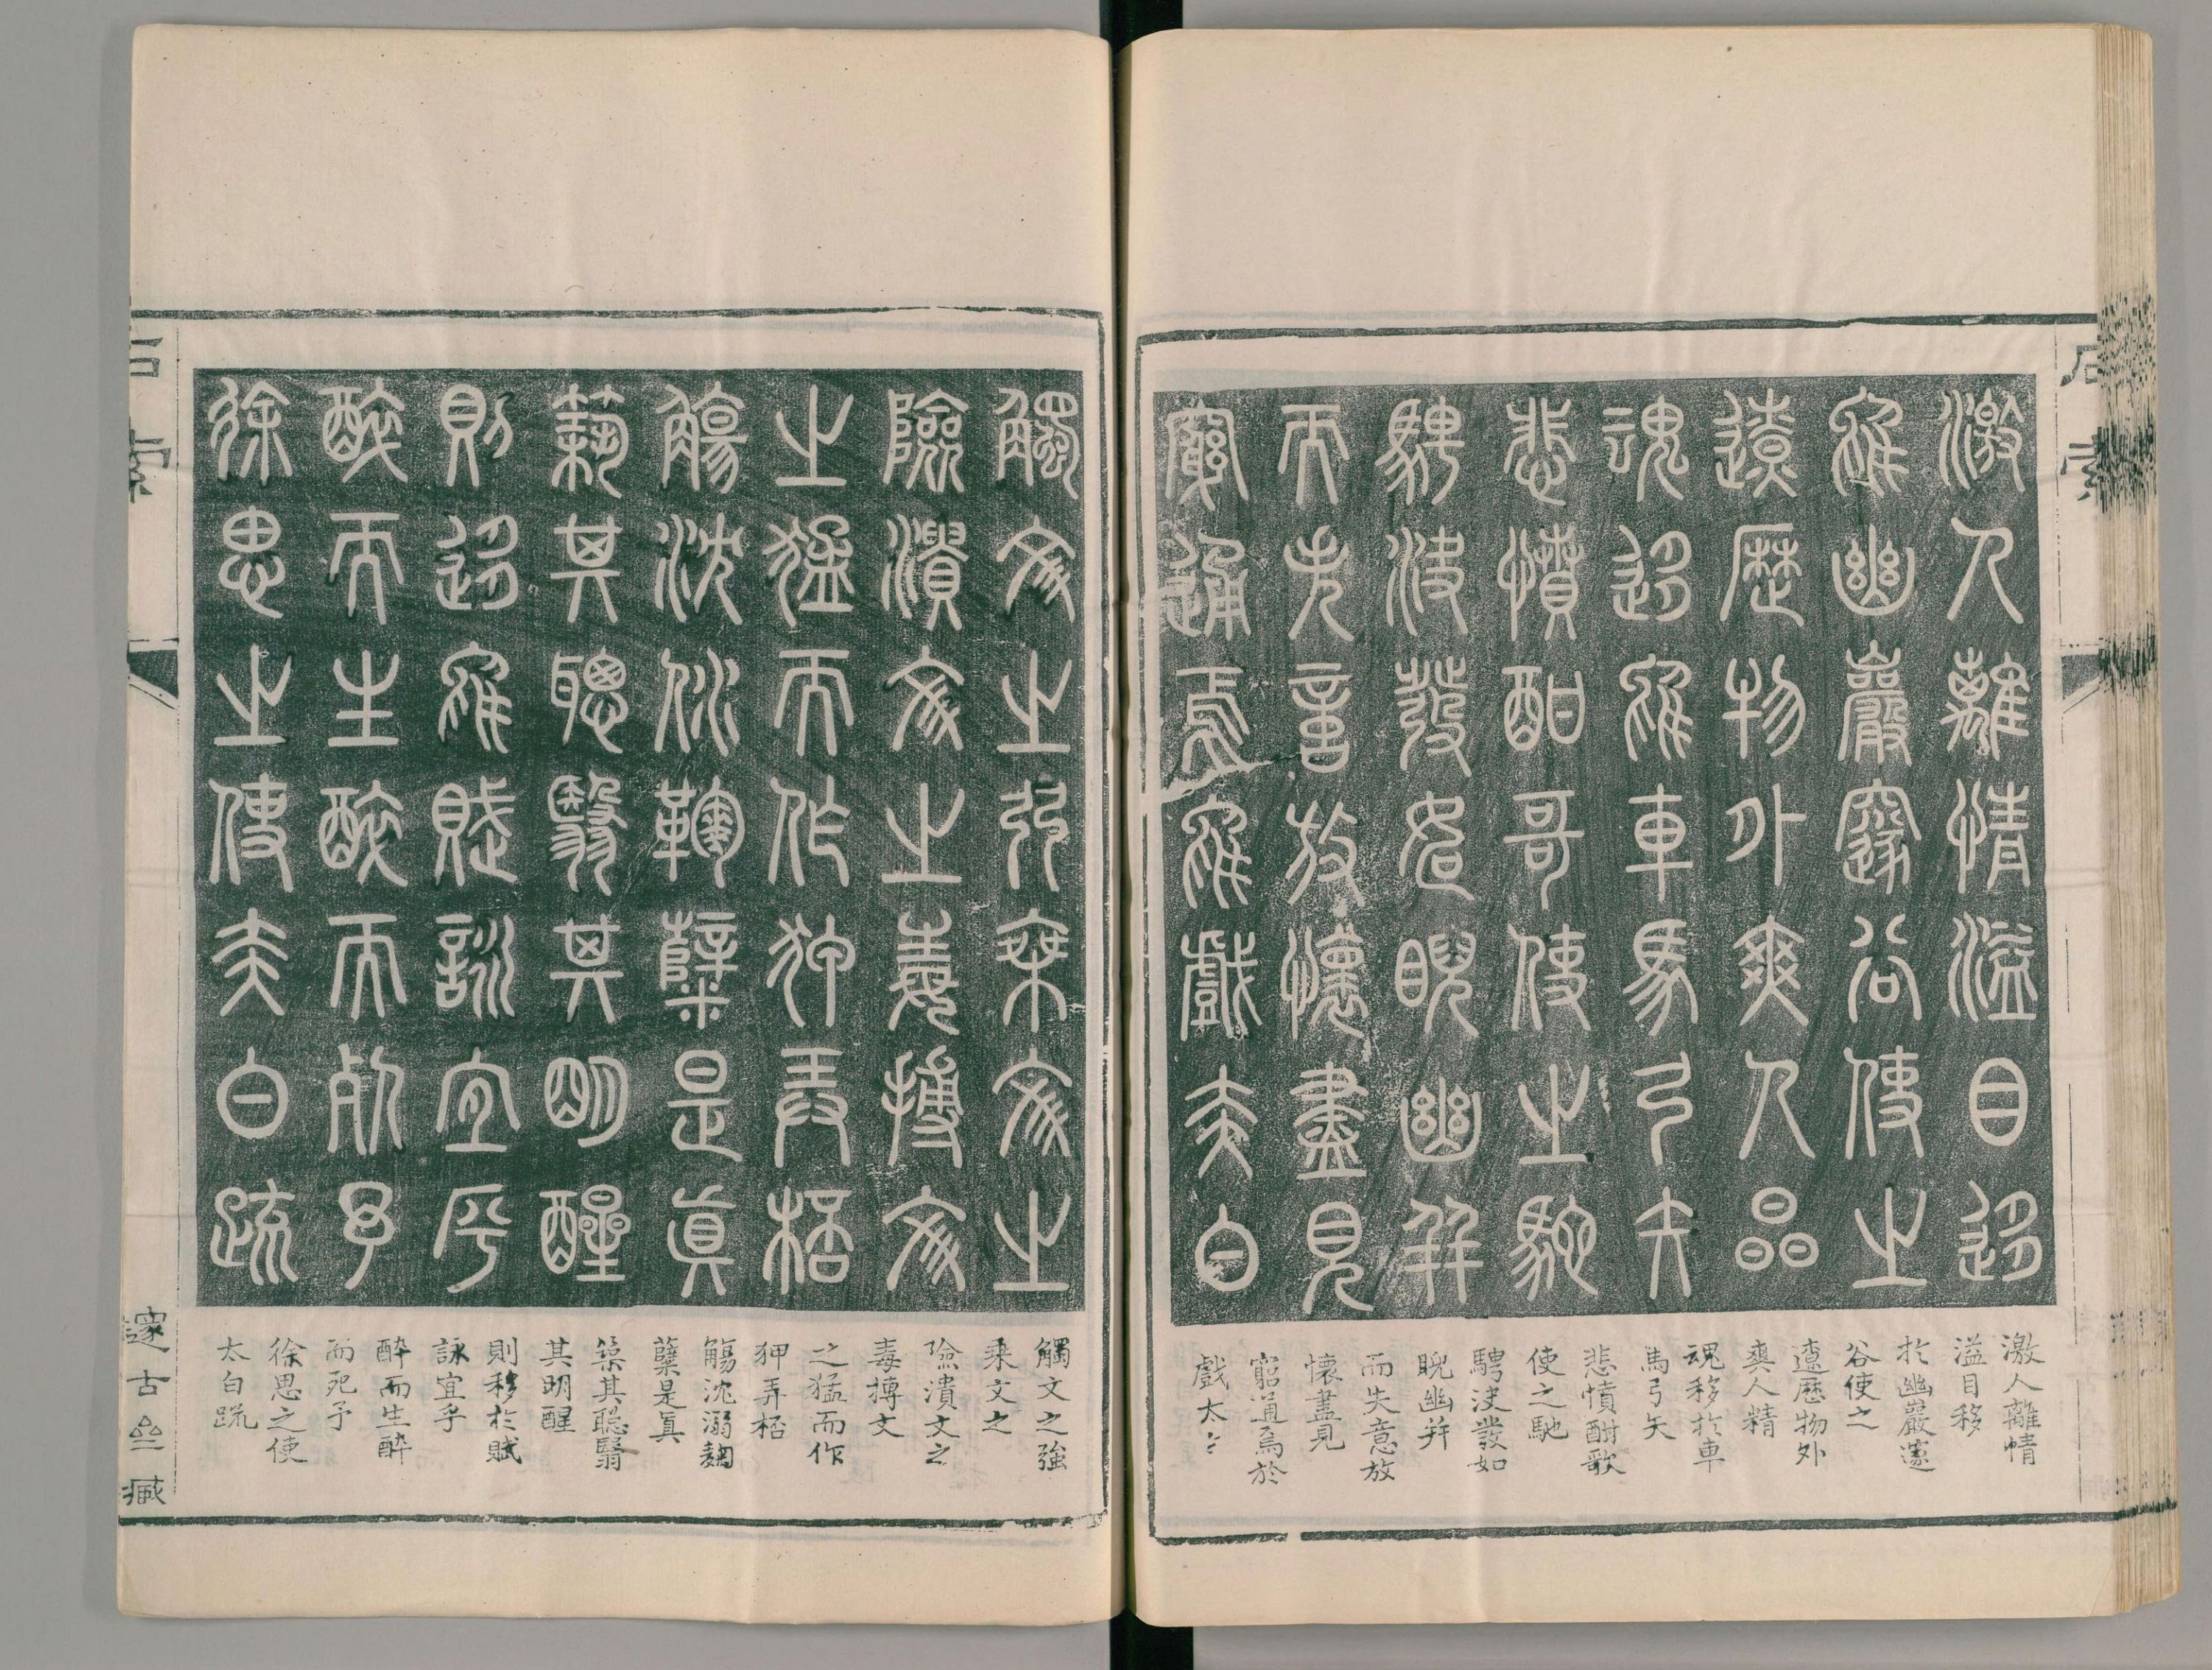 石索
激人離情溢目移
於幽巖邃谷使之
遼歷物外爽人晶
魂移於車馬弓矢
悲憤酣哥使之馳
騁決發如睨幽并
而失意放懷盡見
窮通焉於戲太白
激人離情
溢目移
於幽巖邃
谷使之
遼歷物外
爽人精
魂移於車
馬弓矢
悲憤酣歌
使之馳
騁決發如
睨幽并
而失意放
懷盡見
窮通焉於
戲太
觸文之強乘文之
險潰文之毒摶文
之猛而作狎弄桮
觴沈溺麴糵是真
築其聰翳其明醒
則移於賦詠宜乎
醉而生醉而死予
徐思之使太白疏
觸文之強
乘文之
險潰文之
毒摶文
之猛而作
狎弄桮
觴沈溺麴
糵是真
築其聰翳
其明醒
則移於賦
詠宜乎
醉而生醉
而死予
徐思之使
太白疏
石索
邃古齋藏